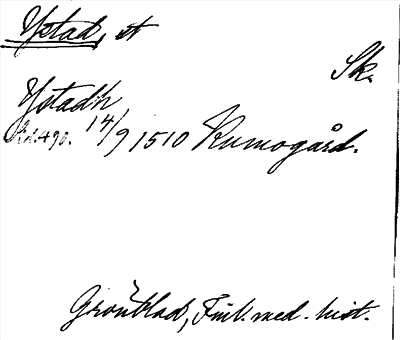 Ystad, st
Sk.
Ystadh
14/9 1510 Kumogård.
Grönblad, Finl. med. hist.